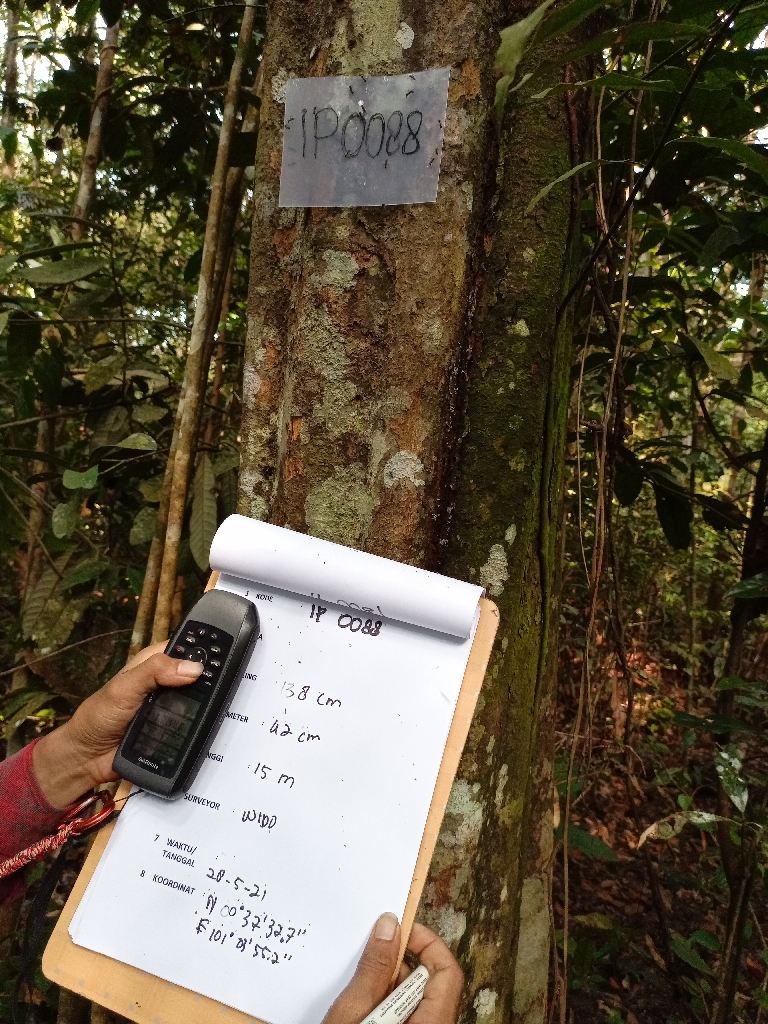 IP0088
KODE IP 0088
LING 138 cm
METER 42 cm
NGGI 15 m
SURVEYOR WIDD
7 WAKTU/
TANGGAL 28-5-21
8 KOORDINAT N 00°37'32.7"
E 101° 03' 55.2"
GARMIN